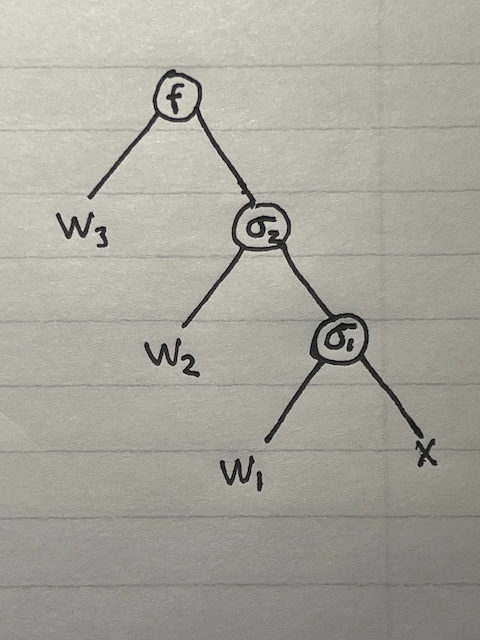 f
W₃
σ₂
W₂
σ₁
W₁
x